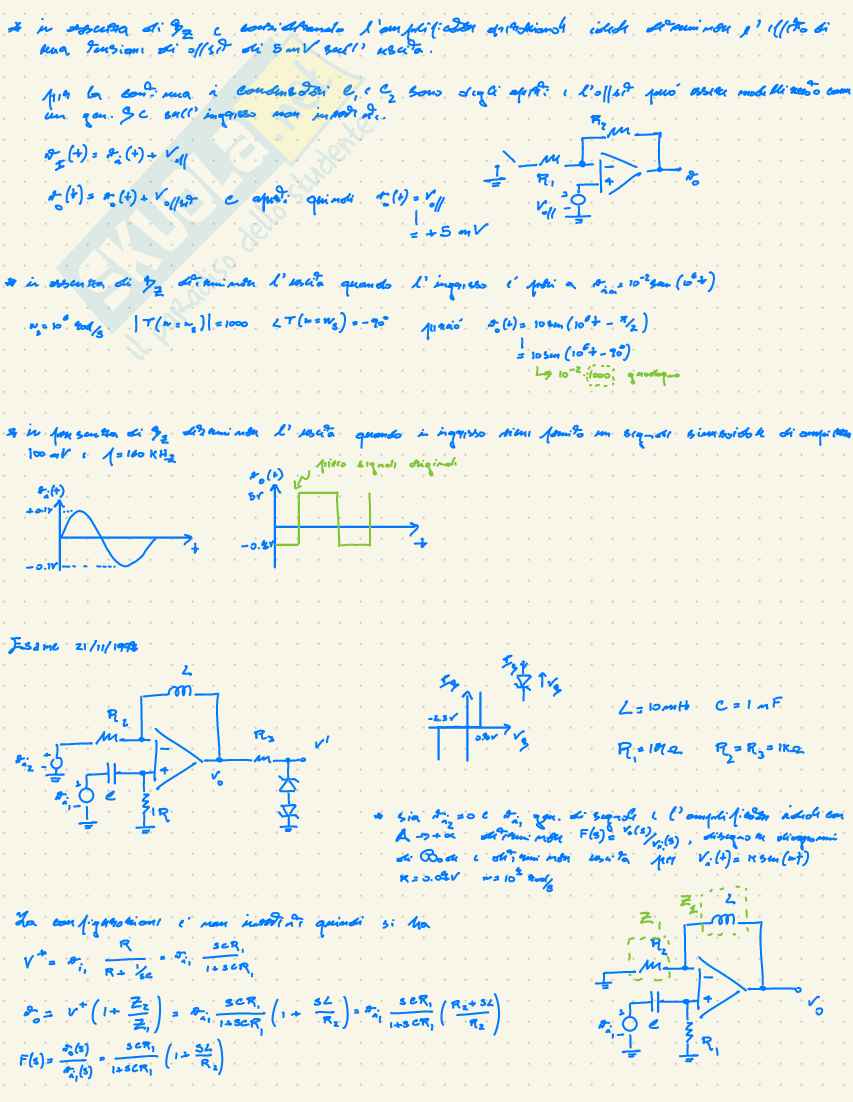 * in assenza di D_Z e considerando l'amplificatore operazionale ideale determinare l'effetto di
una tensione di offset di 5 mV sull'uscita.
per la continua i condensatori C_1 e C_2 sono degli aperti e l'offset può essere modellizzato come
un gen. DC sull'ingresso non invertente.
R_2
v_I(t) = v_i(t) + V_off
R_1
v_o
v_o(t) = v_o(t) + V_offset C aperti quindi v_o(t) = V_off
V_off
= +5 mV
* in assenza di D_Z determinare l'uscita quando l'ingresso è pari a v_in = 10^-2 sen(10^6 t)
w_s = 10^6 rad/s |T(w = w_s)| = 1000 ∠T(w = w_s) = -90° perciò v_o(t) = 10 sen(10^6 t - π/2)
= 10 sen(10^6 t - 90°)
↳ 10^-2 · 1000 guadagno
* in presenza di D_Z determinare l'uscita quando in ingresso viene fornito un segnale sinusoidale di ampiezza
100 mV e f = 160 KHz
v_i(t)
+0.1V
-0.1V
t
v_o(t)
5V
t
Esame 21/11/1998
L
R_2
R_3
V'
v_o
v_i2
v_i1
C
R
I_z
V_z
I_z
V_z
L = 10 mH C = 1 nF
R_2 = R_3 = 1KΩ
* sia v_i2 = 0 e v_i1 gen. di segnale e l'amplificatore ideale con
A → +∞ determinare F(s) = v_o(s)/v_i(s), disegnare diagrammi
di Bode e determinare uscita per V_i(t) = K sen(wt)
La configurazione è non invertente quindi si ha
V^+ = v_i1 R/(R + 1/sC) = v_i1 sCR_1/(1+sCR_1)
Z_1
Z_2
L
R_2
v_o = V^+ (1 + Z_2/Z_1) = v_i1 sCR_1/(1+sCR_1) (1 + sL/R_2) = v_i1 sCR_1/(1+sCR_1) (R_2+sL/R_2)
v_i1
C
R_1
V_o
F(s) = v_o(s)/v_i1(s) = sCR_1/(1+sCR_1) (1 + sL/R_2)
SKUOLA.net
il paradiso dello studente